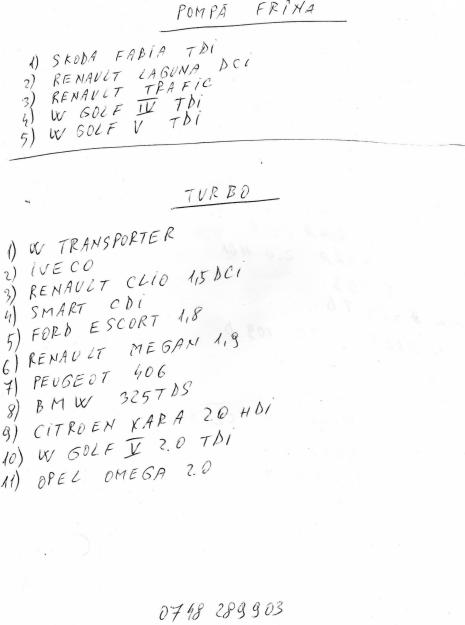 POMPĂ FRÎNA
1) SKODA FABIA TDi
2) RENAULT LAGUNA DCi
3) RENAULT TRAFIC
4) W GOLF IV TDi
5) W GOLF V TDi
TURBO
1) W TRANSPORTER
2) IVECO
3) RENAULT CLIO 1,5 DCi
4) SMART CDi
5) FORD ESCORT 1,8
6) RENAULT MEGAN 1,9
7) PEUGEOT 406
8) BMW 325 TDS
9) CITROEN XARA 2.0 HDi
10) W GOLF V 2.0 TDi
11) OPEL OMEGA 2.0
0748 289903